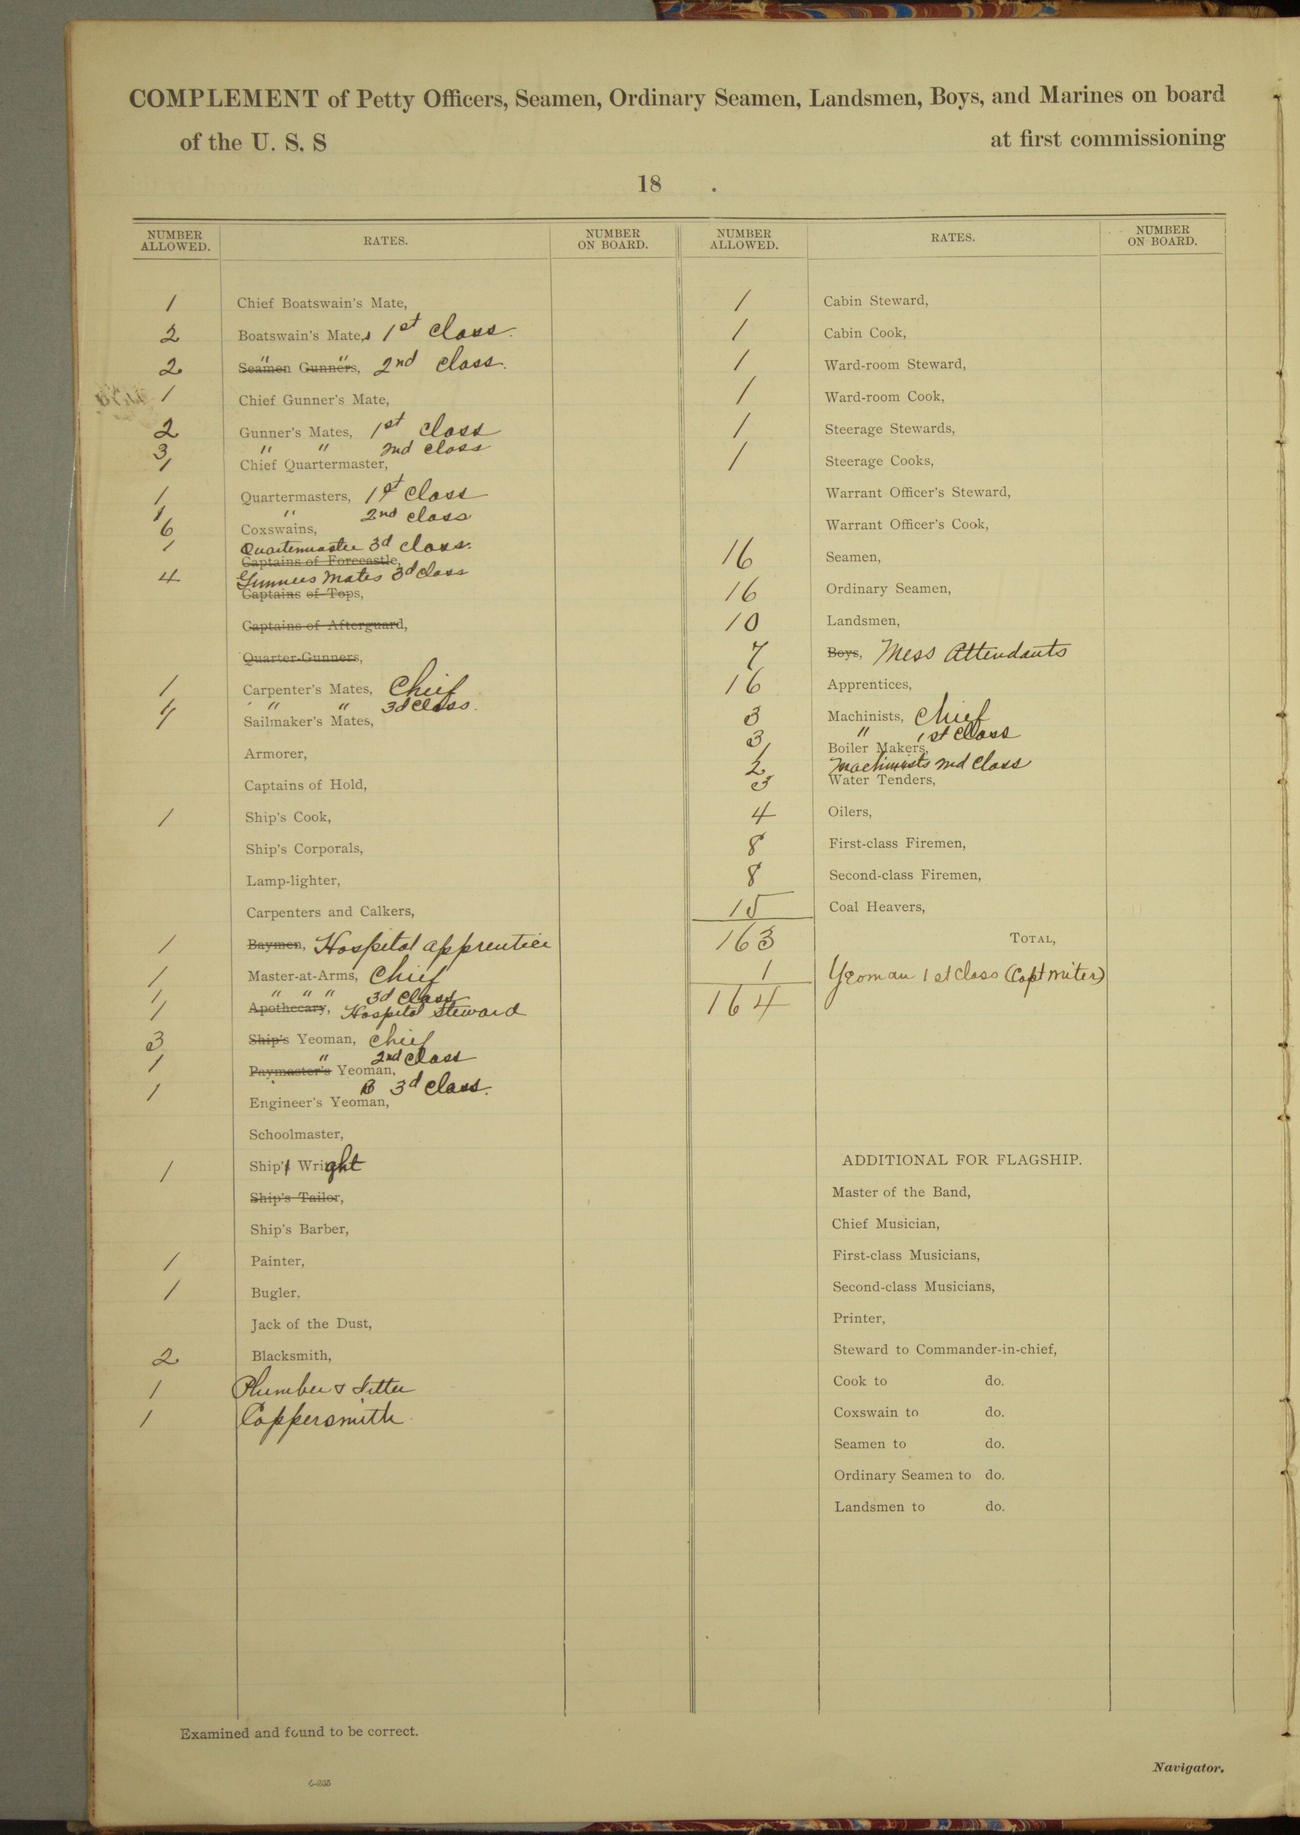 COMPLEMENT of Petty Officers, Seamen, Ordinary Seamen, Landsmen, Boys, and Marines on board
of the U. S. S at first commissioning
18 .
NUMBER ALLOWED. RATES. NUMBER ON BOARD. NUMBER ALLOWED. RATES. NUMBER ON BOARD.
1 Chief Boatswain's Mate,
2 Boatswain's Mate,s 1st Class.
2 Seamen Gunners, " " 2nd Class.
1 Chief Gunner's Mate,
2 Gunner's Mates, 1st Class
3 " " 2nd Class
1 Chief Quartermaster,
1 Quartermasters, 1st Class
1 " 2nd Class
6 Coxswains,
1 Quartermaster 3d Class.
Captains of Forecastle,
4 Gunners Mates 3d Class
Captains of Tops,
Captains of Afterguard,
Quarter-Gunners,
1 Carpenter's Mates, Chief
1 " " 3d Class.
1 Sailmaker's Mates,
Armorer,
Captains of Hold,
1 Ship's Cook,
Ship's Corporals,
Lamp-lighter,
Carpenters and Calkers,
1 Baymen, Hospital apprentice
1 Master-at-Arms, Chief
1 " " " 3d Class
1 Apothecary, Hospital Steward
3 Ship's Yeoman, Chief
1 " 2nd Class
Paymaster's Yeoman,
1 3d Class.
Engineer's Yeoman,
Schoolmaster,
1 Ship Wright
Ship's Tailor,
Ship's Barber,
1 Painter,
1 Bugler.
Jack of the Dust,
2 Blacksmith,
1 Plumber & Fitter
1 Coppersmith
1 Cabin Steward,
1 Cabin Cook,
1 Ward-room Steward,
1 Ward-room Cook,
1 Steerage Stewards,
1 Steerage Cooks,
Warrant Officer's Steward,
Warrant Officer's Cook,
16 Seamen,
16 Ordinary Seamen,
10 Landsmen,
7 Boys, Mess Attendants
16 Apprentices,
3 Machinists, Chief
3 " 1st Class
1 Boiler Makers,
2 Machinists 2nd Class
3 Water Tenders,
4 Oilers,
8 First-class Firemen,
8 Second-class Firemen,
15 Coal Heavers,
163 TOTAL,
1 Yeoman 1st Class (Capt Writer)
164
ADDITIONAL FOR FLAGSHIP.
Master of the Band,
Chief Musician,
First-class Musicians,
Second-class Musicians,
Printer,
Steward to Commander-in-chief,
Cook to do.
Coxswain to do.
Seamen to do.
Ordinary Seamen to do.
Landsmen to do.
Examined and found to be correct.
Navigator.